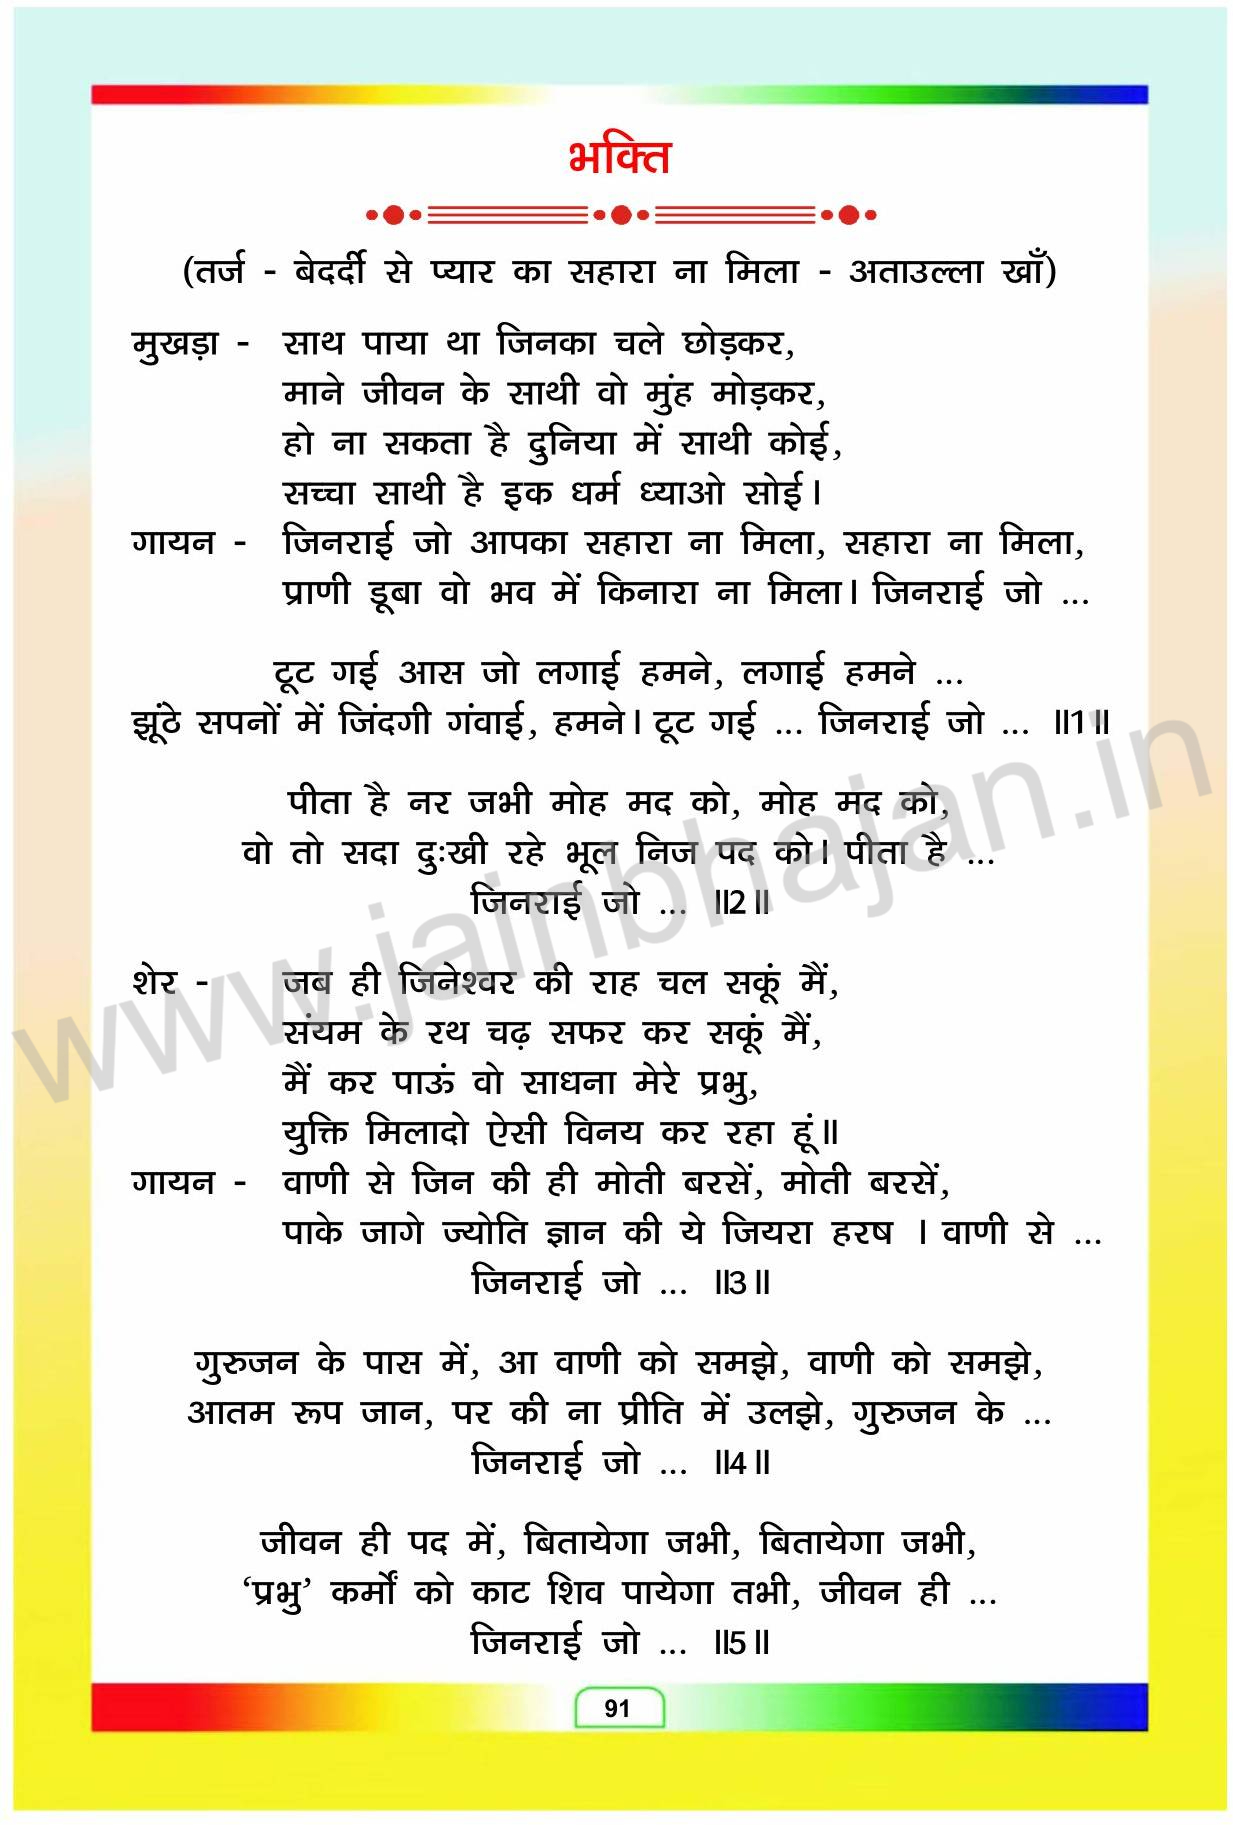 भक्ति
(तर्ज - बेदर्दी से प्यार का सहारा ना मिला - अताउल्ला खाँ)
मुखड़ा - साथ पाया था जिनका चले छोड़कर,
माने जीवन के साथी वो मुंह मोड़कर,
हो ना सकता है दुनिया में साथी कोई,
सच्चा साथी है इक धर्म ध्याओ सोई।
गायन - जिनराई जो आपका सहारा ना मिला, सहारा ना मिला,
प्राणी डूबा वो भव में किनारा ना मिला। जिनराई जो ...
टूट गई आस जो लगाई हमने, लगाई हमने ...
झूंठे सपनों में जिंदगी गंवाई, हमने। टूट गई ... जिनराई जो ... ॥1॥
पीता है नर जभी मोह मद को, मोह मद को,
वो तो सदा दुःखी रहे भूल निज पद को। पीता है ...
जिनराई जो ... ॥2॥
शेर - जब ही जिनेश्वर की राह चल सकूं मैं,
संयम के रथ चढ़ सफर कर सकूं मैं,
मैं कर पाऊं वो साधना मेरे प्रभु,
युक्ति मिलादो ऐसी विनय कर रहा हूं॥
गायन - वाणी से जिन की ही मोती बरसें, मोती बरसें,
पाके जागे ज्योति ज्ञान की ये जियरा हरष । वाणी से ...
जिनराई जो ... ॥3॥
गुरुजन के पास में, आ वाणी को समझे, वाणी को समझे,
आतम रूप जान, पर की ना प्रीति में उलझे, गुरुजन के ...
जिनराई जो ... ॥4॥
जीवन ही पद में, बितायेगा जभी, बितायेगा जभी,
‘प्रभु’ कर्मों को काट शिव पायेगा तभी, जीवन ही ...
जिनराई जो ... ॥5॥
91
www.jainbhajan.in